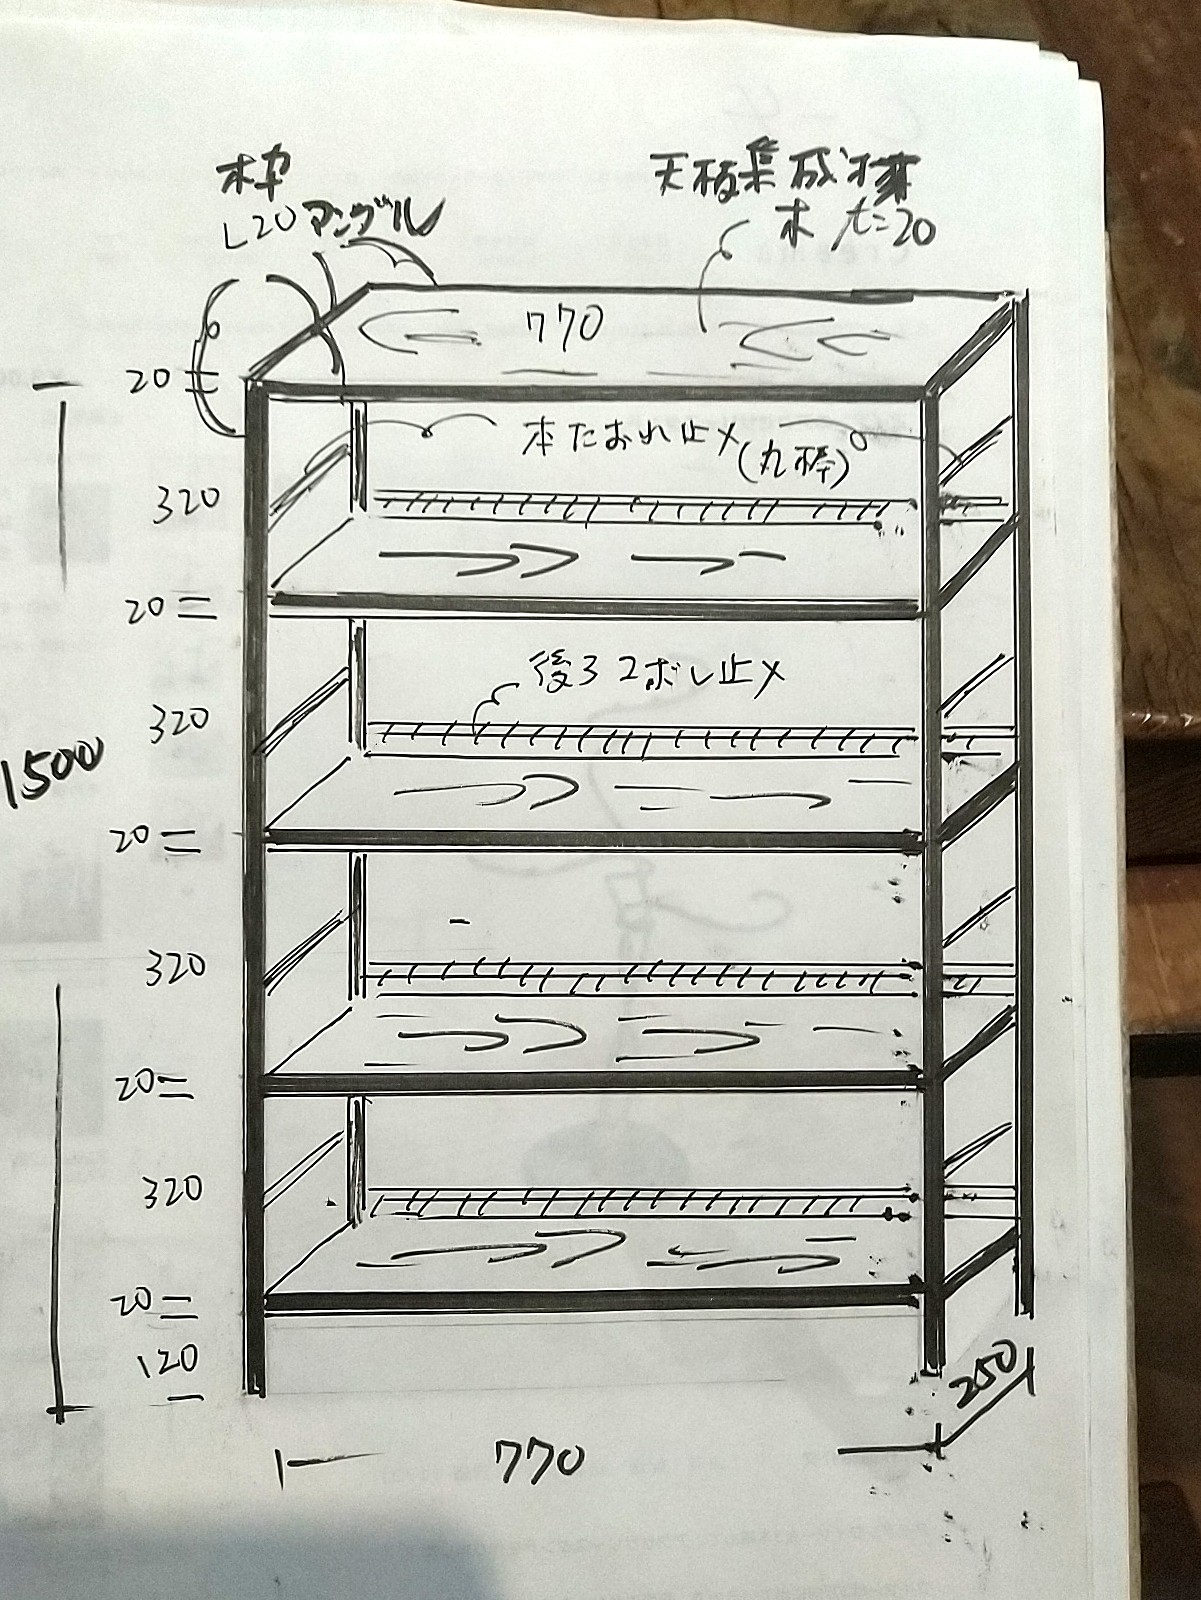 枠
L20アングル
天板集成材
木 t=20
770
20
本たおれ止メ
(丸棒)
320
20
後ろコボレ止メ
320
1500
20
320
20
320
20
120
250
770